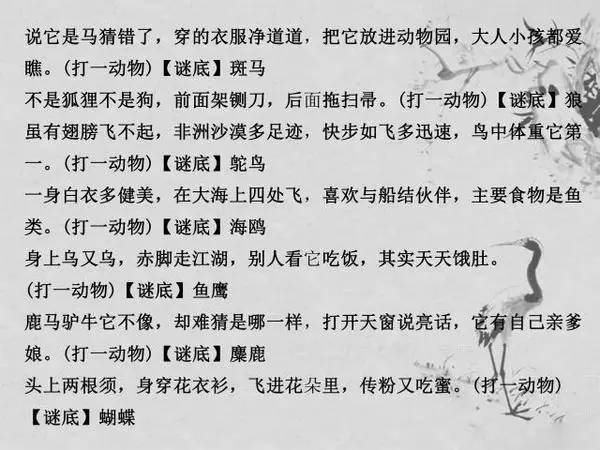 说它是马猜错了，穿的衣服净道道，把它放进动物园，大人小孩都爱
瞧。(打一动物)【谜底】斑马
不是狐狸不是狗，前面架铡刀，后面拖扫帚。(打一动物)【谜底】狼
虽有翅膀飞不起，非洲沙漠多足迹，快步如飞多迅速，鸟中体重它第
一。(打一动物)【谜底】鸵鸟
一身白衣多健美，在大海上四处飞，喜欢与船结伙伴，主要食物是鱼
类。(打一动物)【谜底】海鸥
身上乌又乌，赤脚走江湖，别人看它吃饭，其实天天饿肚。
(打一动物)【谜底】鱼鹰
鹿马驴牛它不像，却难猜是哪一样，打开天窗说亮话，它有自己亲爹
娘。(打一动物)【谜底】麋鹿
头上两根须，身穿花衣衫，飞进花朵里，传粉又吃蜜。(打一动物)
【谜底】蝴蝶